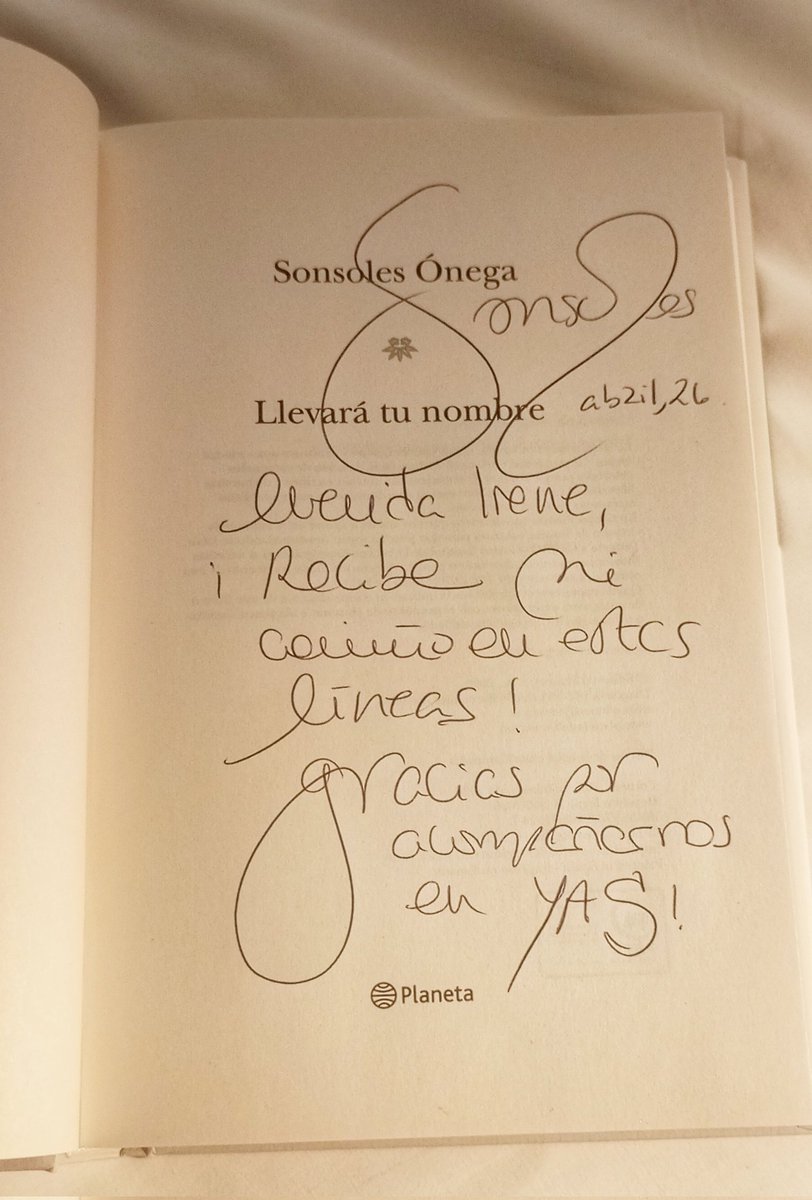 Sonsoles Ónega
Sonsoles
Llevará tu nombre
abril, 26
Querida Irene,
¡Recibe mi
cariño en estas
líneas!
Gracias por
acompañarnos
en YAS!
Planeta